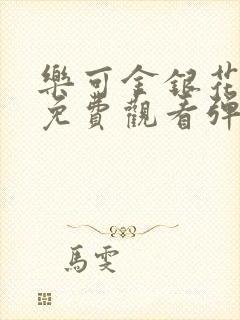 樂可金銀花
免費觀看彈
馬雯